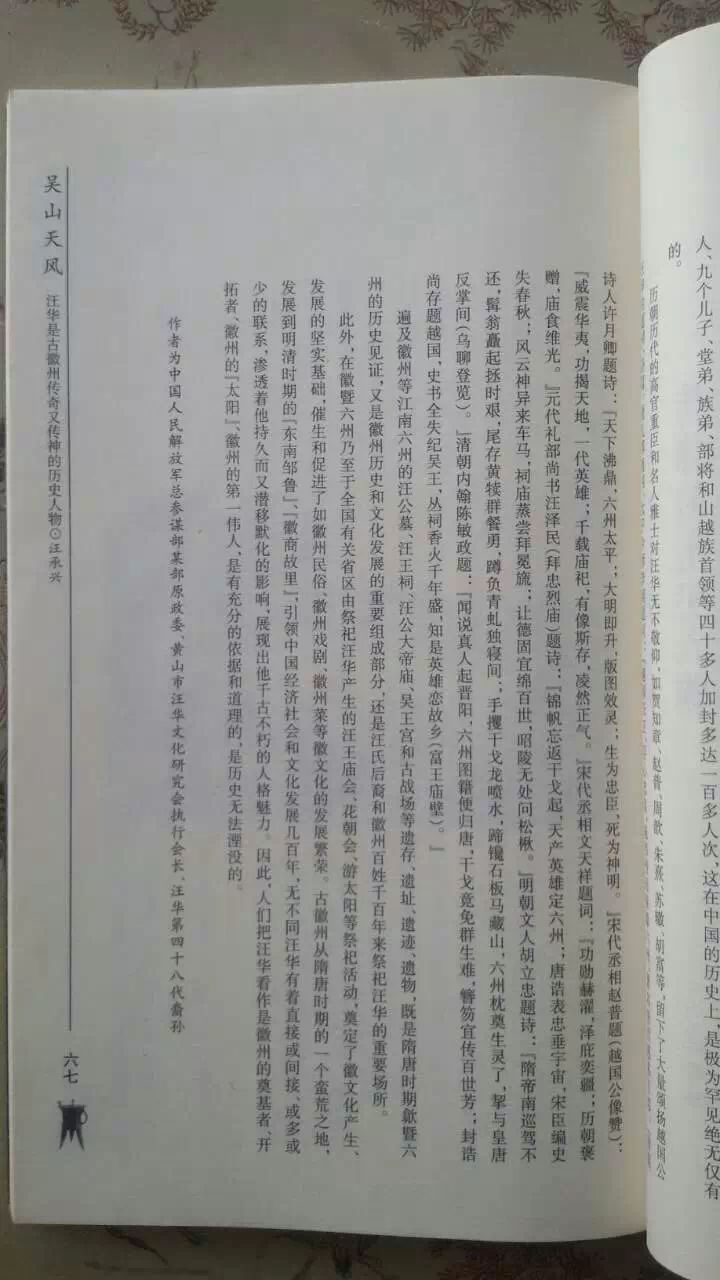 人、九个儿子、堂弟、族弟、部将和山越族首领等四十多人加封多达一百多人次，这在中国的历史上，是极为罕见绝无仅有
的。
历朝历代的高官重臣和名人雅士对汪华无不敬仰，如贺知章、赵普、周歆、朱熹、苏辙、胡富等，留下了大量颂扬越国公
诗人许月卿题诗：『天下沸鼎，六州太平；大明即升，版图效灵；生为忠臣，死为神明。』宋代丞相赵普题（越国公像赞）：
『威震华夷，功揭天地，一代英雄；千载庙祀，有像斯存，凌然正气。』宋代丞相文天祥题词：『功勋赫濯，泽庇奕疆；历朝褒
赠，庙食维光。』元代礼部尚书汪泽民（拜忠烈庙）题诗：『锦帆忘返干戈起，天产英雄定六州；唐诰表忠垂宇宙，宋臣编史
失春秋；风云神异来车马，祠庙蒸尝拜冕旒；让德固宜绵百世，昭陵无处问松楸。』明朝文人胡立忠题诗：『隋帝南巡驾不
还，髯翁矗起拯时艰，尾存黄犊群餐勇，蹲负青虬独寝间；手攫干戈龙喷水，蹄镵石板马藏山，六州枕奠生灵了，挈与皇唐
反掌间（乌聊登览）。』清朝内翰陈敏政题：『闻说真人起晋阳，六州图籍便归唐，干戈竟免群生难，簪笏宜传百世芳；封诰
尚存题越国，史书全失纪吴王，丛祠香火千年盛，知是英雄恋故乡（富王庙壁）。』
遍及徽州等江南六州的汪公墓、汪王祠、汪公大帝庙、吴王宫和古战场等遗存、遗址、遗迹、遗物，既是隋唐时期歙暨六
州的历史见证，又是徽州历史和文化发展的重要组成部分，还是汪氏后裔和徽州百姓千百年来祭祀汪华的重要场所。
此外，在徽暨六州乃至于全国有关省区由祭祀汪华产生的汪王庙会、花朝会、游太阳等祭祀活动，奠定了徽文化产生、
发展的坚实基础，催生和促进了如徽州民俗、徽州戏剧、徽州菜等徽文化的发展繁荣。古徽州从隋唐时期的一个蛮荒之地，
发展到明清时期的『东南邹鲁』、『徽商故里』，引领中国经济社会和文化发展几百年，无不同汪华有着直接或间接、或多或
少的联系，渗透着他持久而又潜移默化的影响，展现出他千古不朽的人格魅力。因此，人们把汪华看作是徽州的奠基者、开
拓者、徽州的『太阳』、徽州的第一伟人，是有充分的依据和道理的，是历史无法湮没的。
作者为中国人民解放军总参谋部某部原政委、黄山市汪华文化研究会执行会长、汪华第四十八代裔孙
吴山天风 汪华是古徽州传奇又传神的历史人物⊙汪承兴
六七